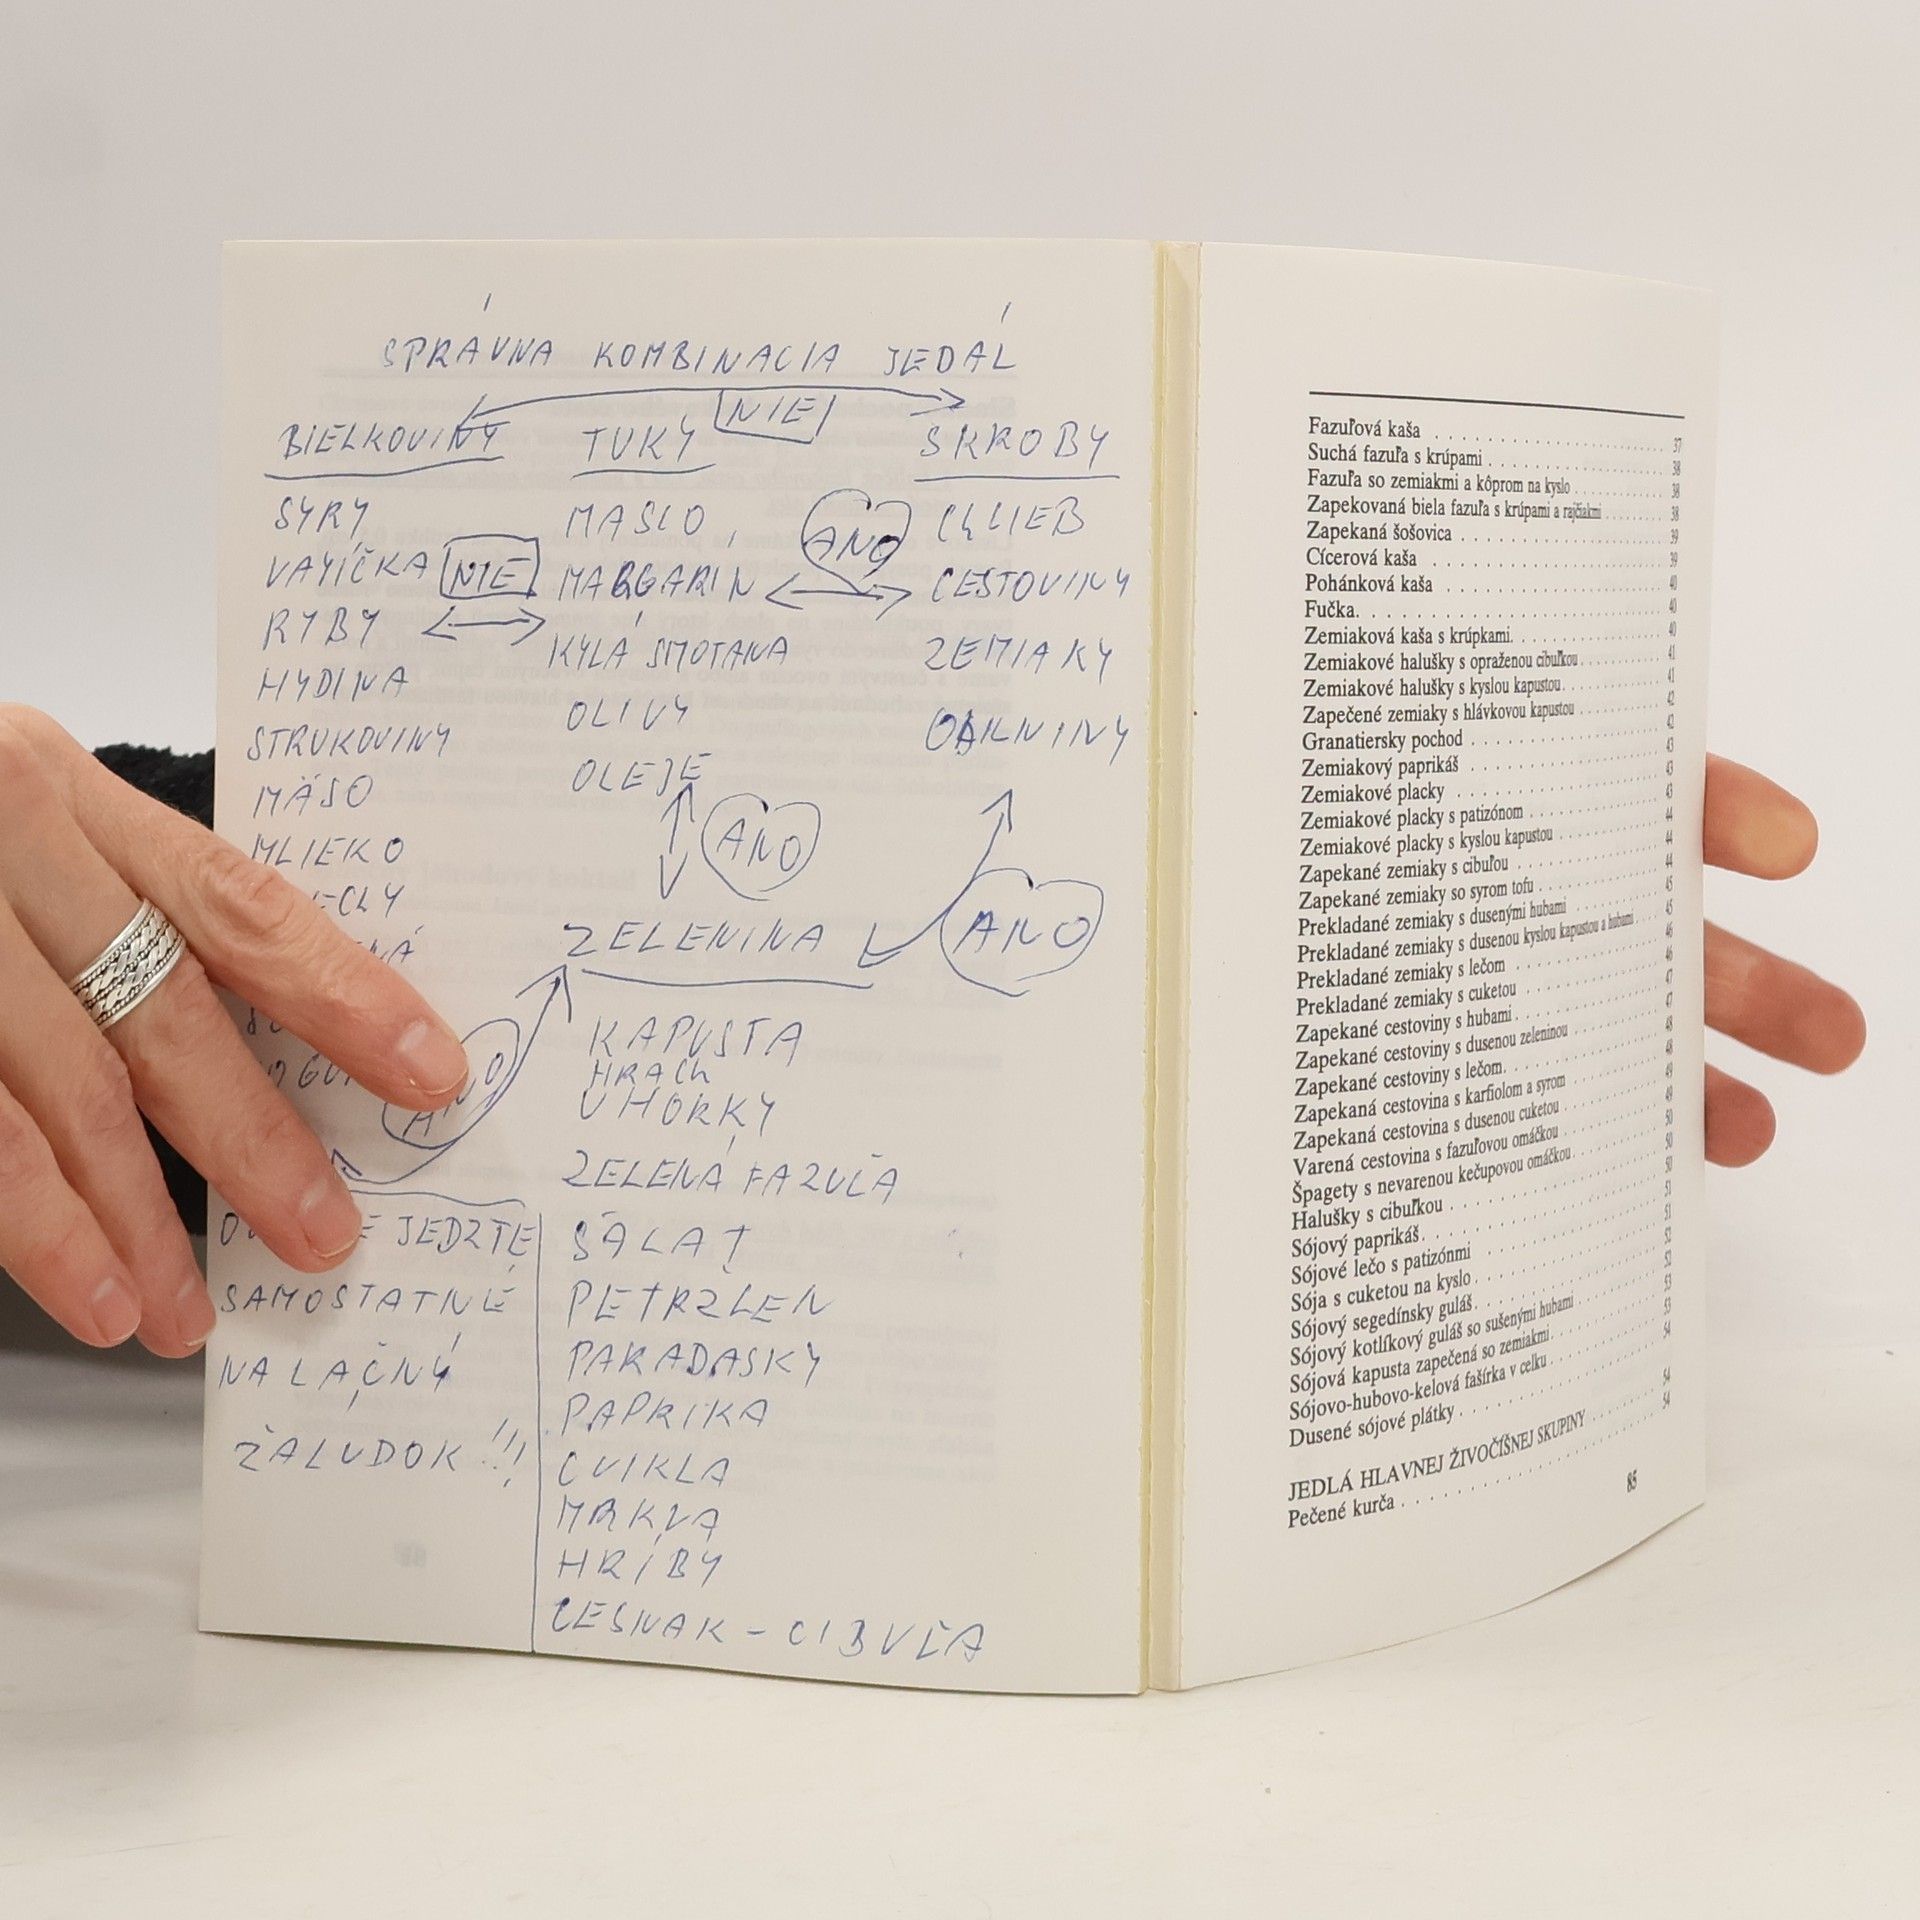 SPRÁVNA KOMBINACIA JEDÁL
NIE
BIELKOVINY TUKY ŠKROBY
SYRY MASLO, ANO CHLIEB
VAYÍČKA NIE MARGARIN CESTOVINY
RYBY KYLÁ SMOTANA ZEMIAKY
HYDINA OLIVY OBILNINY
STRUKOVINY OLEJE
MÄSO ANO
MLIEKO
ZELENINA ANO
ANO
KAPUSTA
HRACH
UHORKY
ZELENÁ FAZUĽA
JEDZTE ŠALAT
SAMOSTATNE PETRZLEN
NA LAČNÝ PARADASKY
ŽALUDOK !!! PAPRIKA
CVIKLA
MRKVA
HRÍBY
CESNAK - CIBUĽA
Fazuľová kaša . . . 37
Suchá fazuľa s krúpami . . . 38
Fazuľa so zemiakmi a kôprom na kyslo . . . 38
Zapekovaná biela fazuľa s krúpami a rajčiakmi . . . 38
Zapekaná šošovica . . . 39
Cícerová kaša . . . 39
Pohánková kaša . . . 40
Fučka . . . 40
Zemiaková kaša s krúpkami . . . 40
Zemiakové halušky s opraženou cibuľkou . . . 41
Zemiakové halušky s kyslou kapustou . . . 41
Zapečené zemiaky s hlávkovou kapustou . . . 42
Granatiersky pochod . . . 42
Zemiakový paprikáš . . . 43
Zemiakové placky . . . 43
Zemiakové placky s patizónom . . . 43
Zemiakové placky s kyslou kapustou . . . 44
Zapekané zemiaky s cibuľou . . . 44
Zapekané zemiaky so syrom tofu . . . 44
Prekladané zemiaky s dusenými hubami . . . 45
Prekladané zemiaky s dusenou kyslou kapustou a hubami . . . 45
Prekladané zemiaky s lečom . . . 46
Prekladané zemiaky s cuketou . . . 46
Zapekané cestoviny s hubami . . . 47
Zapekané cestoviny s dusenou zeleninou . . . 47
Zapekané cestoviny s lečom . . . 48
Zapekaná cestovina s karfiolom a syrom . . . 48
Zapekaná cestovina s dusenou cuketou . . . 49
Varená cestovina s fazuľovou omáčkou . . . 49
Špagety s nevarenou kečupovou omáčkou . . . 50
Halušky s cibuľkou . . . 50
Sójový paprikáš . . . 50
Sójové lečo s patizónmi . . . 51
Sója s cuketou na kyslo . . . 51
Sójový segedínsky guláš . . . 52
Sójový kotlíkový guláš so sušenými hubami . . . 52
Sójová kapusta zapečená so zemiakmi . . . 53
Sójovo-hubovo-kelová fašírka v celku . . . 53
Dusené sójové plátky . . . 54
JEDLÁ HLAVNEJ ŽIVOČÍŠNEJ SKUPINY . . . 54
Pečené kurča . . . 54
85